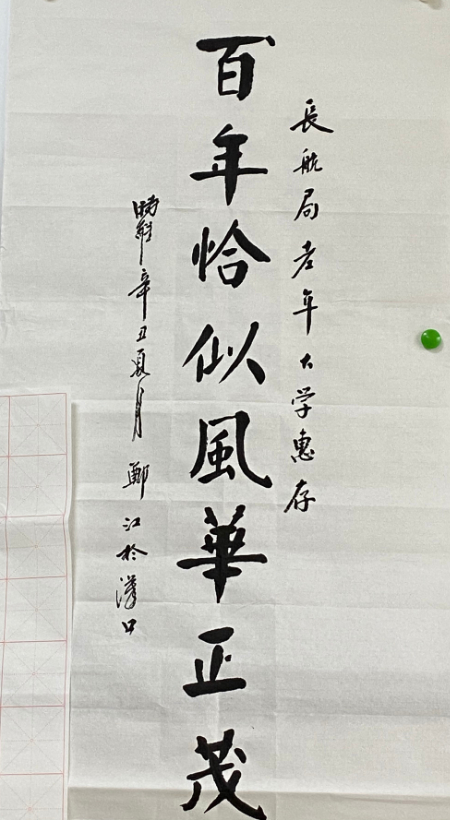 長航局老年大学惠存
百年恰似風華正茂
時維辛丑夏月鄭江於漢口